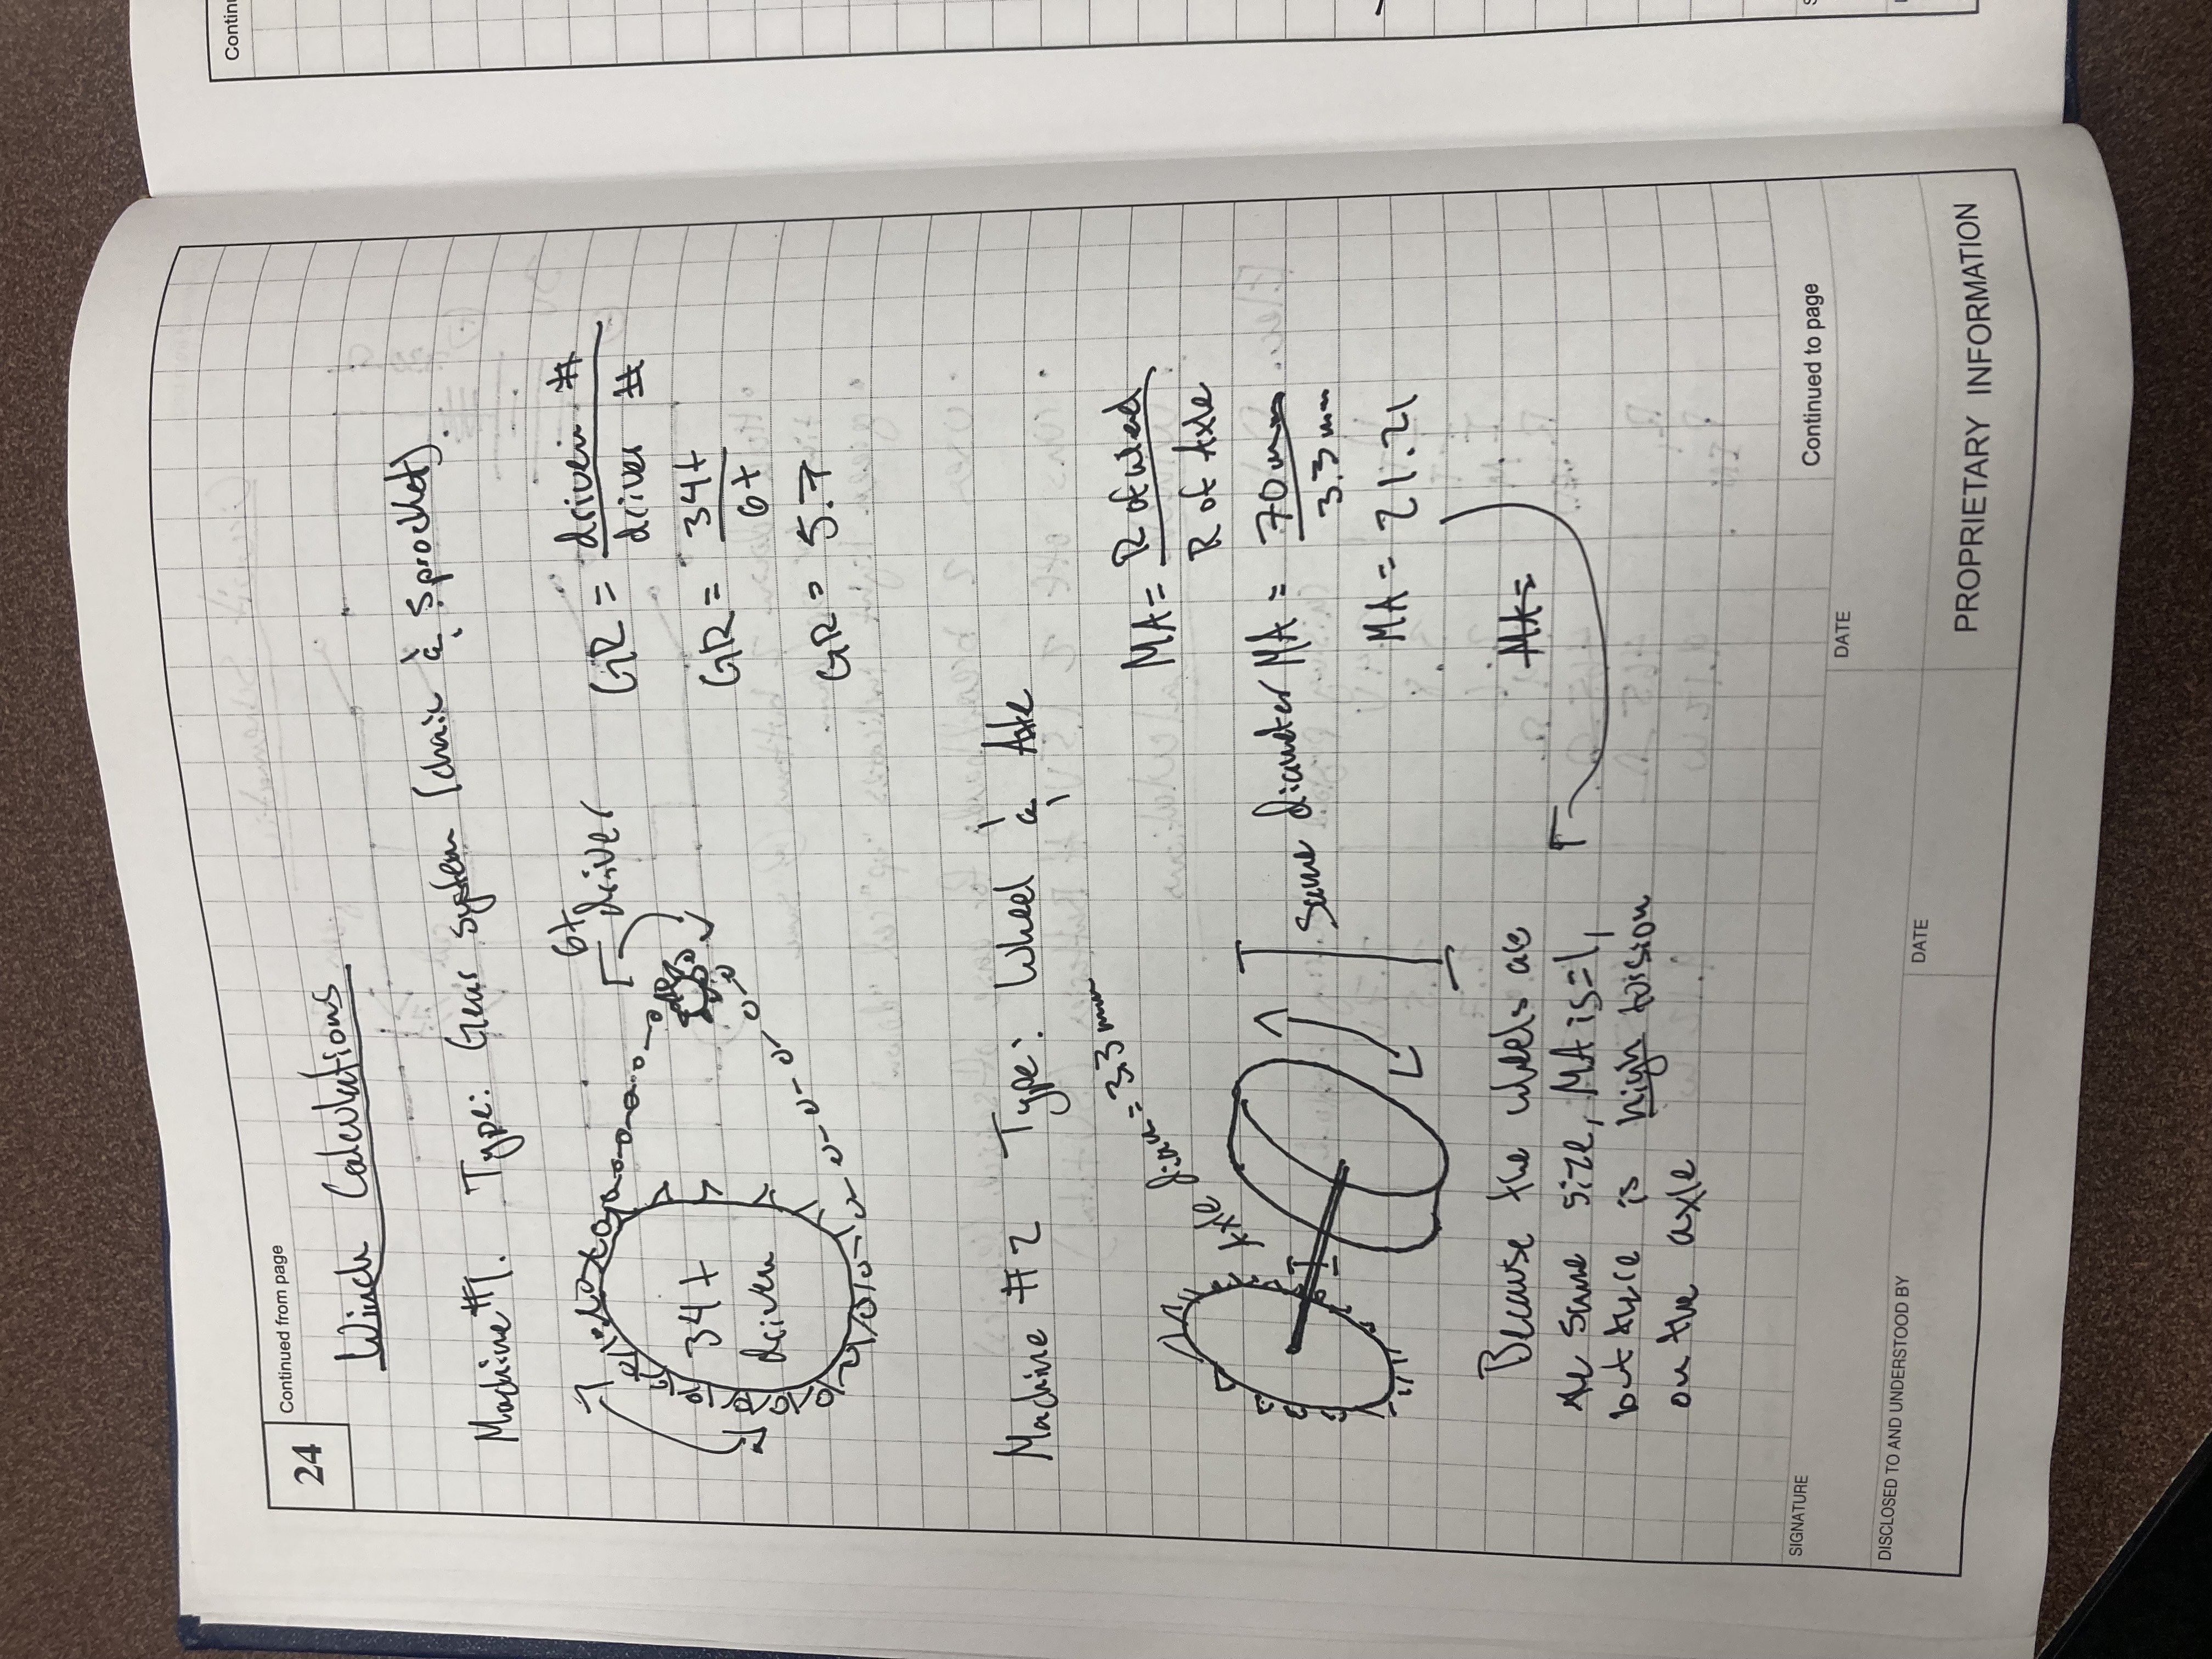 24
Continued from page
Winch Calculations
Machine #1. Type: Gear system (chain & sprocket)
6t
driver
34t
driven
GR = driven # / driver #
GR = 34t / 6t
GR = 5.7
Machine #2 Type: Wheel & Axle
Axle diam = 3.3 mm
Same diameter
MA = R of wheel / R of Axle
MA = 70mm / 3.3 mm
MA = 21.21
MA=
Because the wheels are
the same size, MA is = 1,
but there is high torsion
on the axle
SIGNATURE
Continued to page
DATE
DISCLOSED TO AND UNDERSTOOD BY
DATE
PROPRIETARY INFORMATION